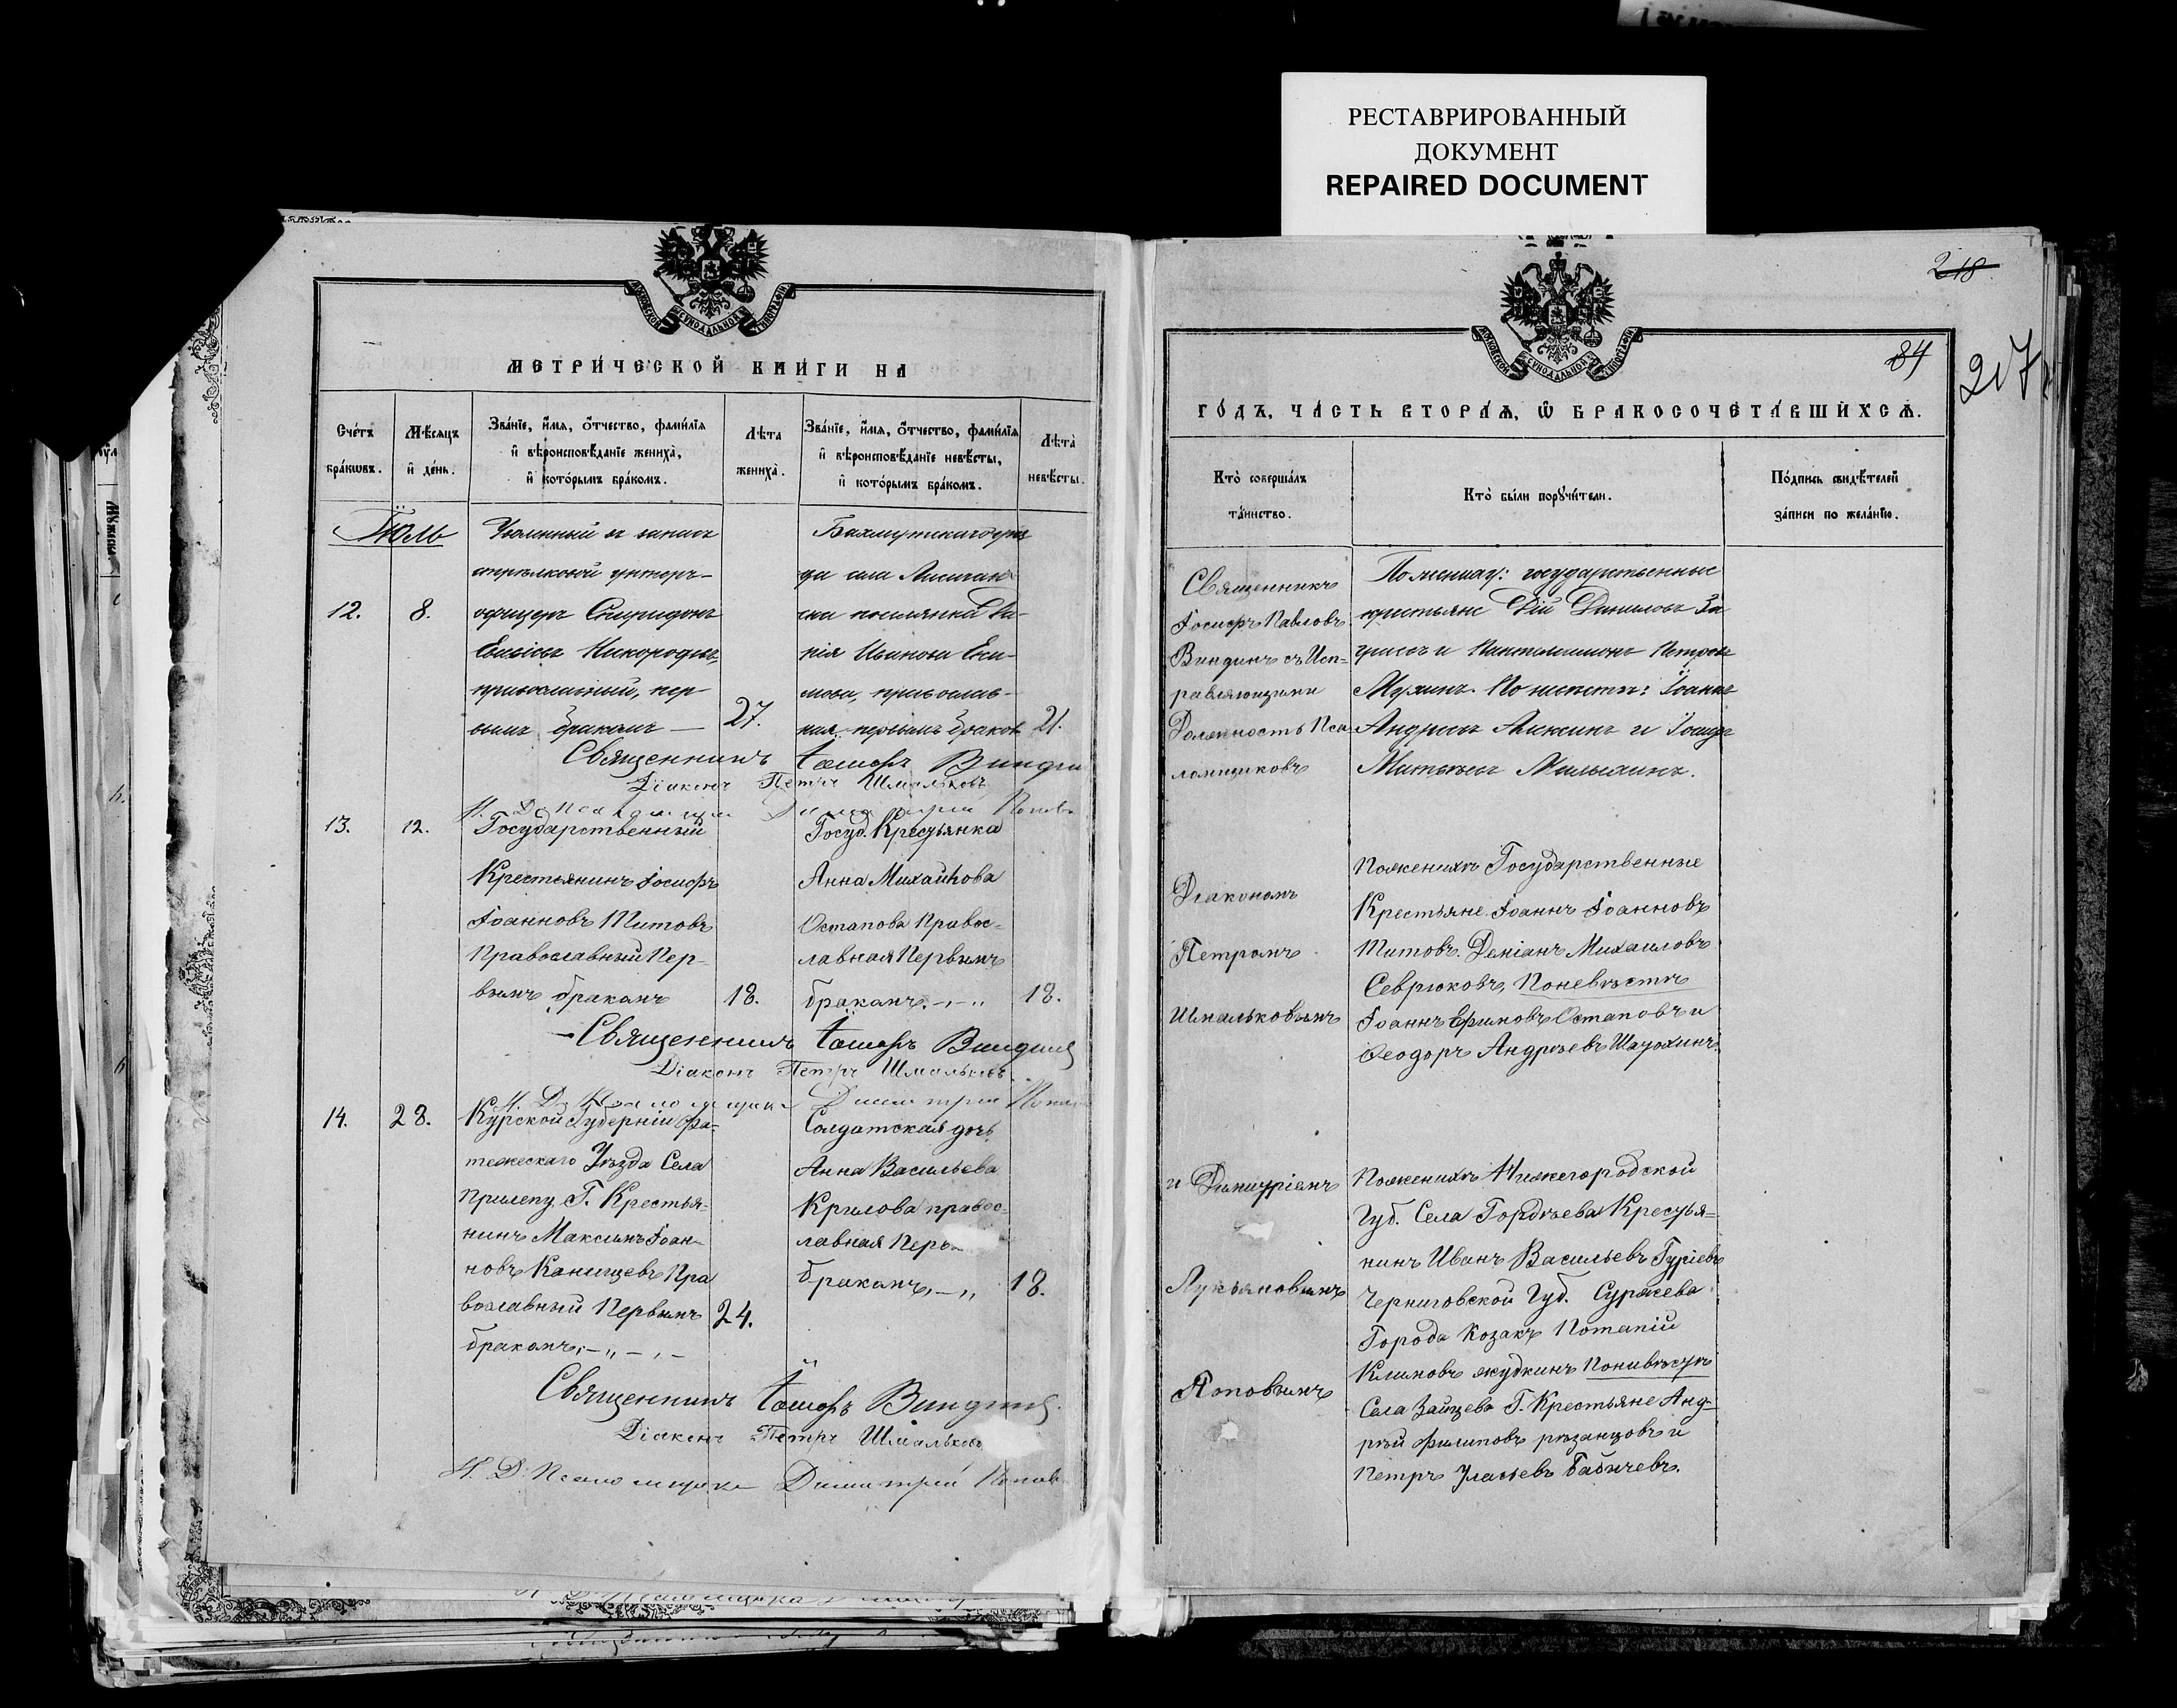 РЕСТАВРИРОВАННЫЙ
ДОКУМЕНТ
REPAIRED DOCUMENT
МЕТРИ́ЧЕСКОЙ КНИ́ГИ НА
Сче́тъ
бра́кѡвъ.
Мѣ́сяцъ
и҆ де́нь.
Зва́нїе, и҆́мя, ѻ҆́тчество, фами́лїя
и҆ вѣроисповѣ́данїе жениха̀,
и҆ кото́рымъ бра́комъ.
Лѣта
жениха̀.
Зва́нїе, и҆́мя, ѻ҆́тчество, фами́лїя
и҆ вѣроисповѣ́данїе невѣ́сты,
и҆ кото́рымъ бра́комъ.
Лѣта̀
невѣ́сты.
Іюль
12.
8.
Уволенный въ запасъ
стрѣлковой унтеръ-
офицеръ Спиридонъ
православный, пер
вымъ бракомъ —
27.
Бахмутскаго уѣз
да села Лисичан
ска поселянка
нія Иванова
православ-
ная, первымъ браком
21.
Священникъ Іосифъ Виндин
Діаконъ Петръ Шмальковъ
И. Д. Псаломщика Димитрій Попов
13.
12.
Государственный
Крестьянинъ Іосифъ
Іоанновъ Титовъ
Православный Пер-
вымъ бракомъ
18.
Госуд. Крестьянка
Анна Михайлова
Остапова Правос-
лавная Первымъ
бракомъ. -,-,,
18.
Священникъ Іосифъ Виндинъ
Діаконъ Петръ Шмальковъ
И. Д. Псаломщика Димитрій Попов
14.
28.
Курской Губерніи Фа-
тежескаго Уѣзда Села
Прилепу Г. Крестья-
нинъ Максимъ Іоан-
новъ Канищевъ Пра
вославный Первымъ
бракомъ,-,,-,-
24.
Солдатская дочь
Анна Васильева
Крилова правос-
лавная Перв
бракомъ,-,,
18.
Священникъ Іосифъ Виндинъ
Діаконъ Петръ Шмальковъ
И. Д. Псаломщика Димитрій Попов
218
84
217
ГО́ДЪ, ЧА́СТЬ ВТОРА́Ѧ, Ѽ БРАКОСОЧЕТА́ВШИХСѦ.
Кто̀ соверша́лъ
та́инство.
Кто̀ бы́ли порꙋчи́тели.
По́дпись свидѣ́телей
за́писи по жела́нїю.
Священникъ
Іосифъ Павловъ
Виндинъ съ Исп-
равляющими
Должность Пса-
ломщиковъ
По жениху: государственные
крестьяне Данилов
и Пантелимонъ Петров
По невѣстѣ: Іоаннъ
Андреев и Іосиф
Матвѣев
Діакономъ
Петромъ
Шмальковымъ
Поженихѣ Государственные
Крестьяне Іоаннъ Іоанновъ
Титовъ. Деміанъ Михаиловъ
Севрюковъ, Поневѣстѣ
Іоаннъ Ефимовъ Остаповъ и
Ѳеодоръ Андреевъ
и Димитріемъ
Лукьяновымъ
Поповымъ
Поженихѣ Нижегородской
Губ. Села Гордѣева Крестья-
нинъ Иванъ Васильевъ Гуріевъ
Черниговской Губ. Суражева
Города Козакъ Потапій
Климовъ Якудкинъ Поневѣстѣ
Села Зайцева Г. Крестьяне Анд-
рѣй Филиповъ рѣзанцовъ и
Петръ Улаѣевъ Бабичевъ.